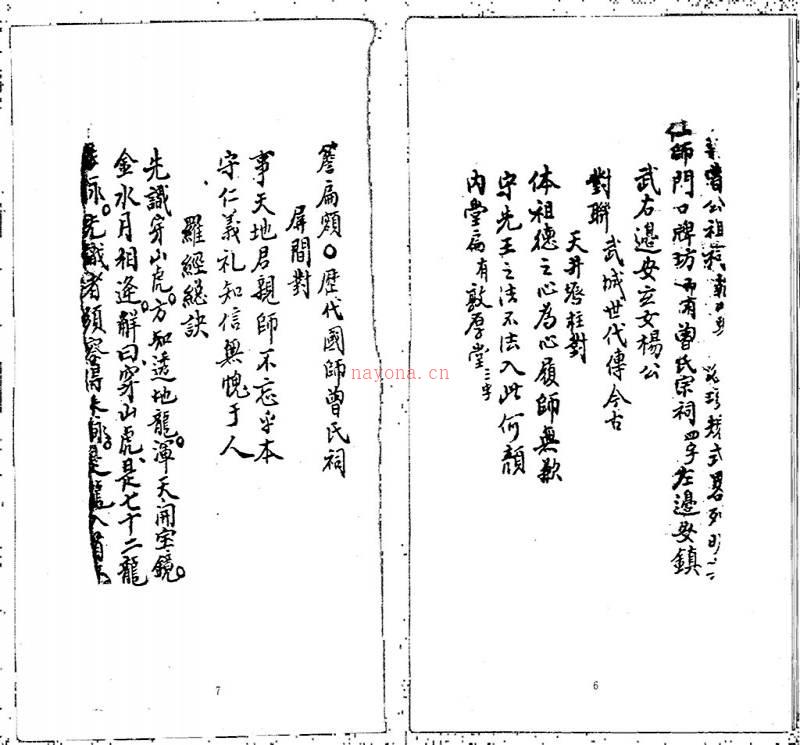 曾公祖祠
仕師門口牌坊一所有曾氏宗祠四字左邊安鎮
武右邊安立文楊公
對聯 武城世代傳今古
天井砛柱對
体祖德之心為心履師無歉
守先王之法不法入此何顏
內堂扁有敦厚堂三字
6
簷扁額。歷代國師曾氏祠
屏間對
事天地君親師不忘乎本
守仁義礼知信無愧于人
羅經總訣
先識穿山虎。方知透地龍。渾天開宝鏡。
金水月相逢。解曰穿山虎。是七十二龍
先識者
7
nayona.cn